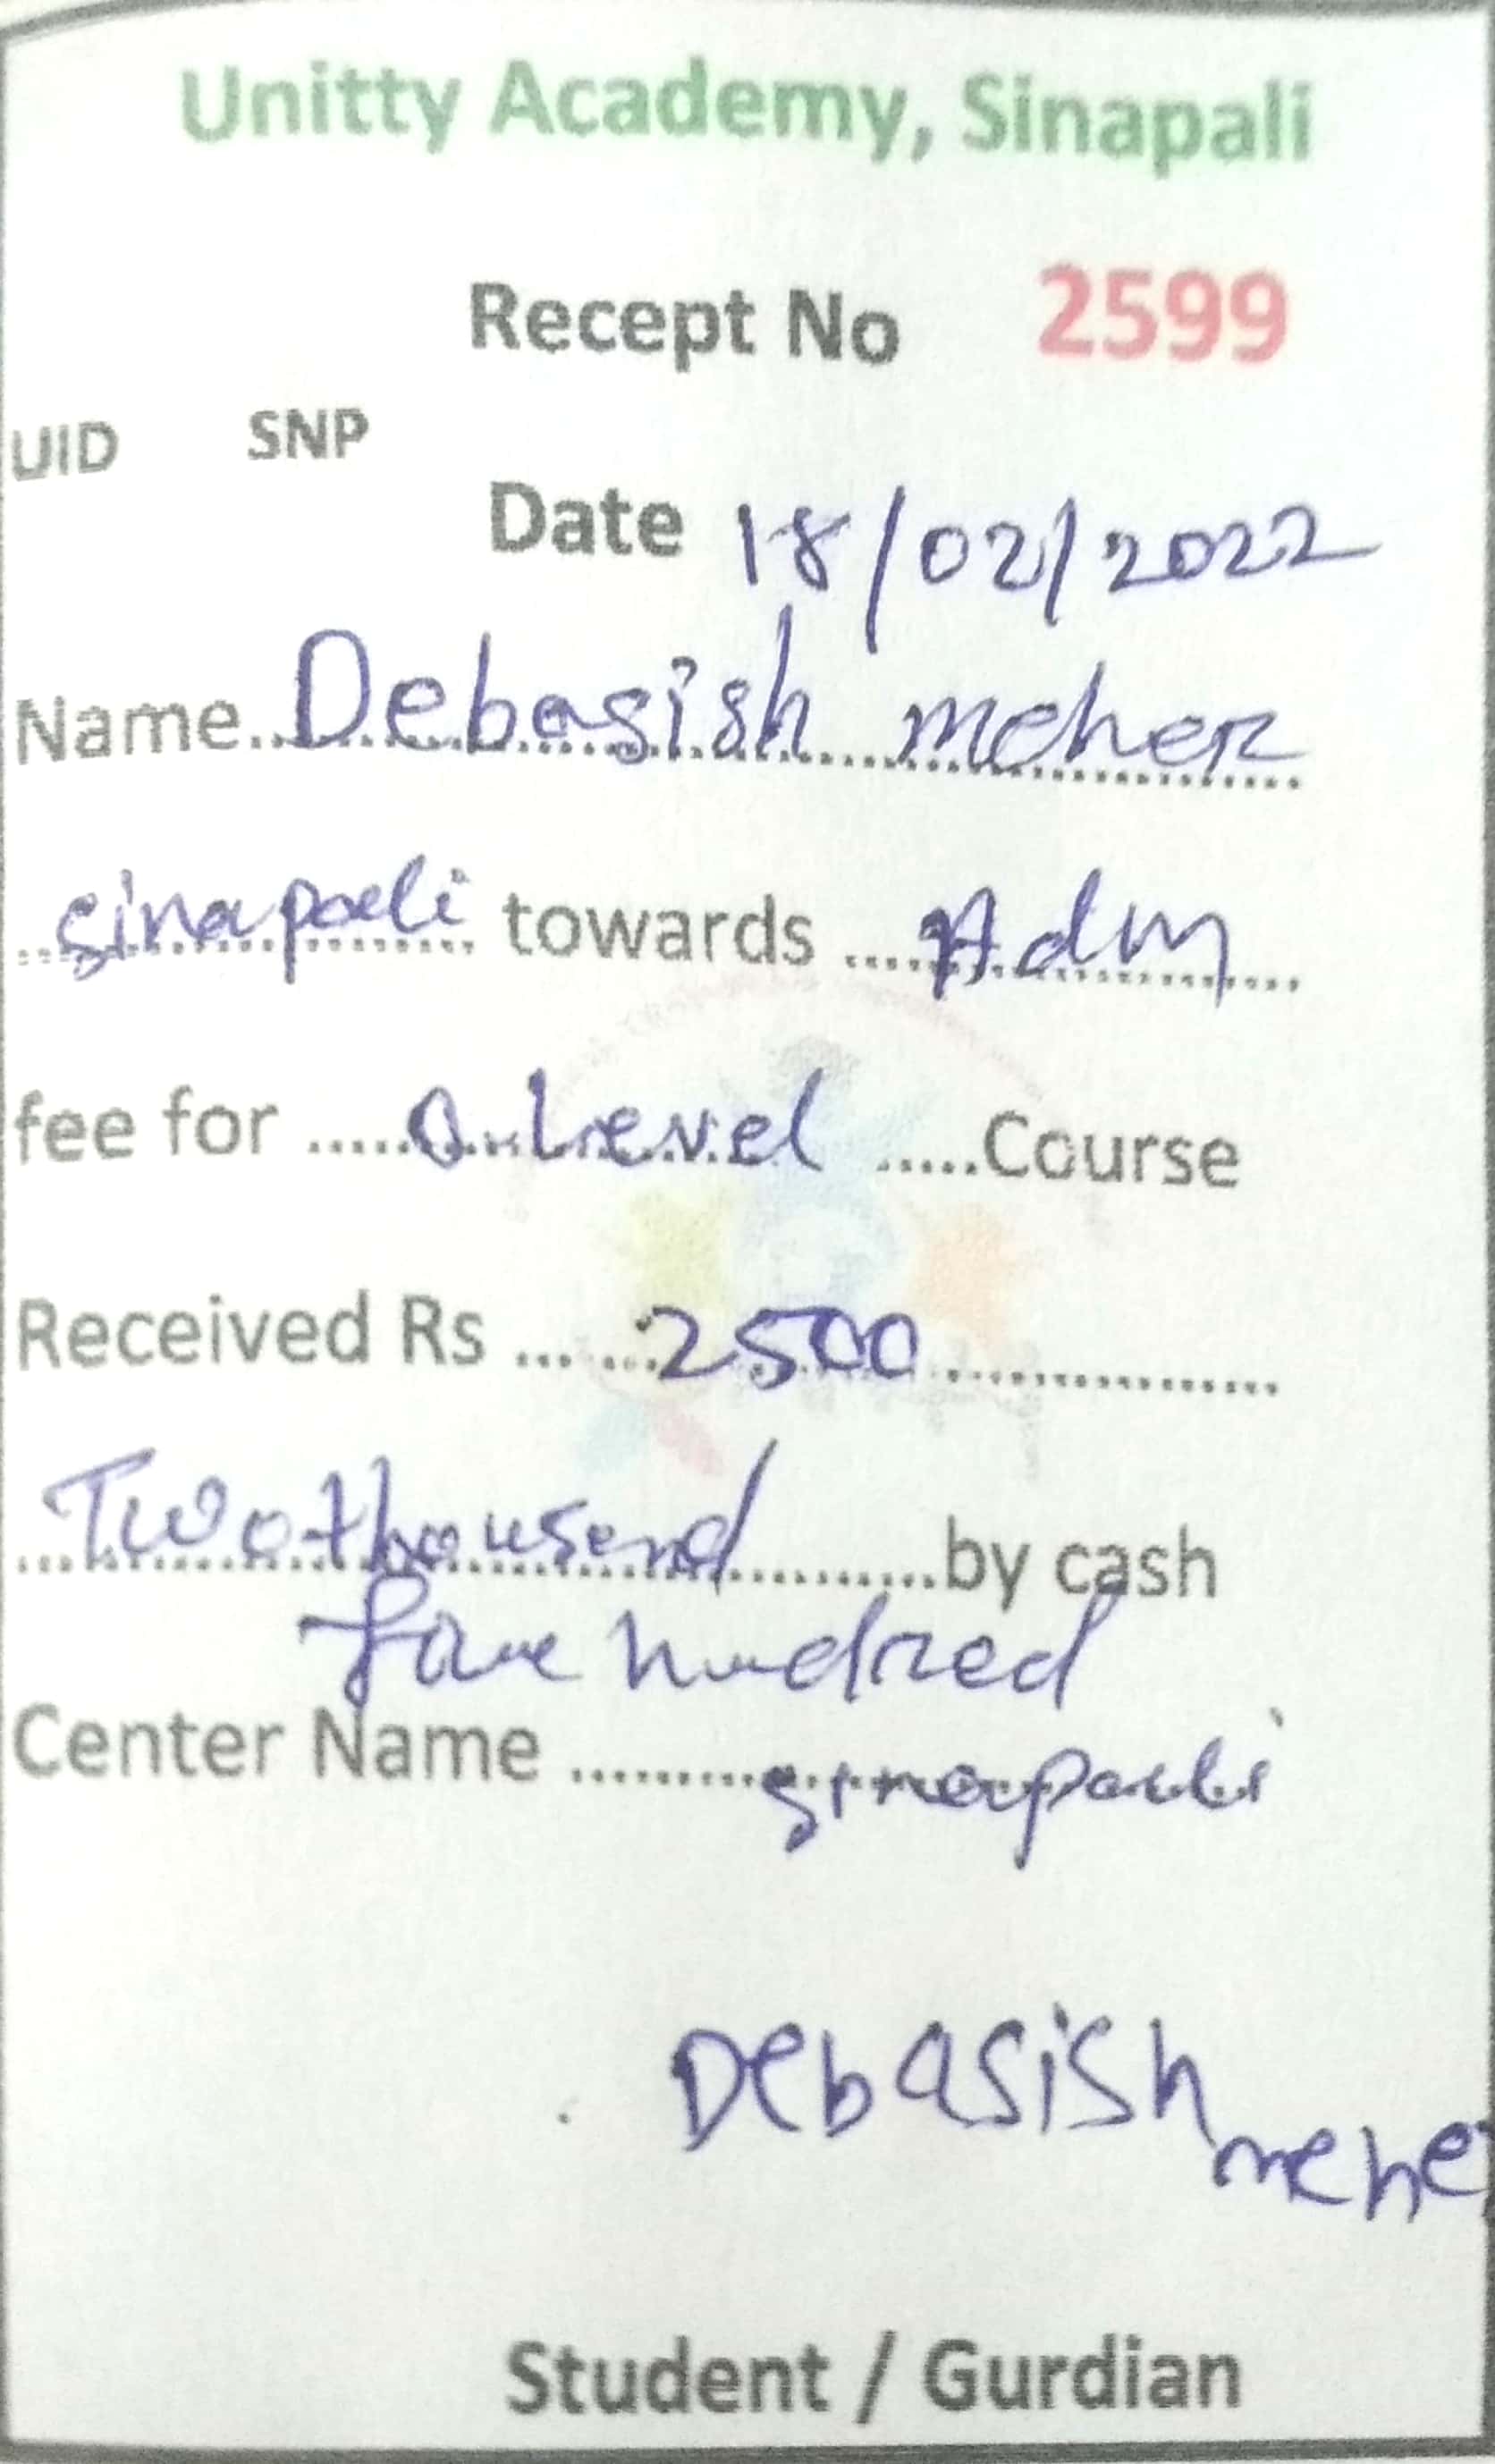 Unitty Academy, Sinapali
Recept No 2599
UID SNP
Date 18/02/2022
Name Debasish meher
sinapali towards Adm
fee for O Level Course
Received Rs 2500
Two thousend by cash
five hundred
Center Name sinapali
Debasish
mehe
Student / Gurdian